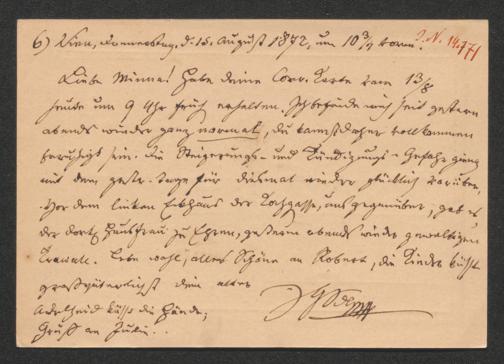 6) Wien, Donnerstag, d. 15. August 1872, um 10 3/4 vorm. J. N. 14.771
Liebe Minna! Habe deine Corr. Karte vom 13/8
heute um 9 Uhr früh erhalten. Ich befinde mich seit gestern
abends wieder ganz normal, du kannst daher vollkommen
beruhigt sein. Die Steigerungs- und Kündigungs-Gefahr ging
mit dem gestr. Tage für diesmal wieder glücklich vorüber.
Vor dem linken Eckhaus der Kochgasse, uns gegenüber, gab es
der dort. Hausfrau zu Ehren, gestern abends wieder gewaltigen
Krawall. Lebe wohl, alles Schöne an Robert, die Kinder küsst
großväterlichst dein alter
Adelheid küsst die Hände;
Gruß an Julie..